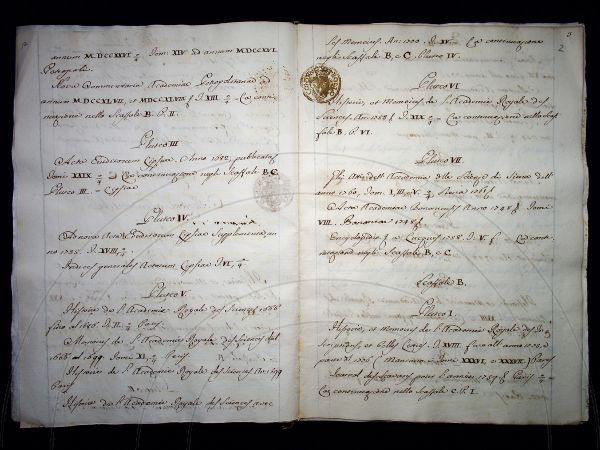 annum MDCCXXVI. Tom. XIV ad annum MDCCXVI.
Petropoli.
Nova Commentaria Academiae Petropolitanae ad
annum MDCCXLVII, et MDCCXLVIII T. XIII La conti
nuazione nello Scaffale B. P. II.
Pluteo III
Acta Eruditorum Lipsiae Anno 1682. publicata
Tomi XXIX La continuazione negli Scaffali B, C.
Pluteo III. Lipsiae
Pluteo IV.
Ad nova Acta Eruditorum Lipsiae Supplementa, an
no 1735. T. XVIII, 4.
Indices generales Actorum Lipsiae T. VI, 4
Pluteo V.
Histoire de l'Academie Royale des Sciences 1666
fino al 1686. T. II. Paris.
Memoires de l'Academie Royale des Sciences del
1666 al 1699. Tomi XI, Paris
Histoire de l'Academie Royale des Sciences An. 1699
Paris
Histoire de l'Academie Royale des Sciences avec
3
2
les Memoires. An. 1700. T. IV La continuazione
negli Scaffali B, C. Pluteo IV.
Pluteo VI
Histoire, et Memoires de l'Academie Royale des
Sciences An. 1758 T. XIX La continuazione nello Scaf
fale B. P. VI.
Pluteo VII.
Gli Atti dell'Accademia delle Scienze di Siena dell'
anno 1760, Tom. I, III, e V. Siena 1761
Acta Academiae Bononiensis Anno 1748 Tomi
VIII. Bononiae 1748
Encyclopedie a Lucques 1758. T. V. La conti
nuazione negli Scaffali B, e C.
Scaffale B.
Pluteo I.
Histoire, et Memoires de l'Academie Royale des In
scriptions, et belles Lettres. T. XVIII fino all'anno 1773, e
parte al 1776 Mancano i Tomi XXXVI, e XXXVII. Paris
Journal des Savans pour l'annee 1757 Paris
La continuazione nello Scaffale C. P. I